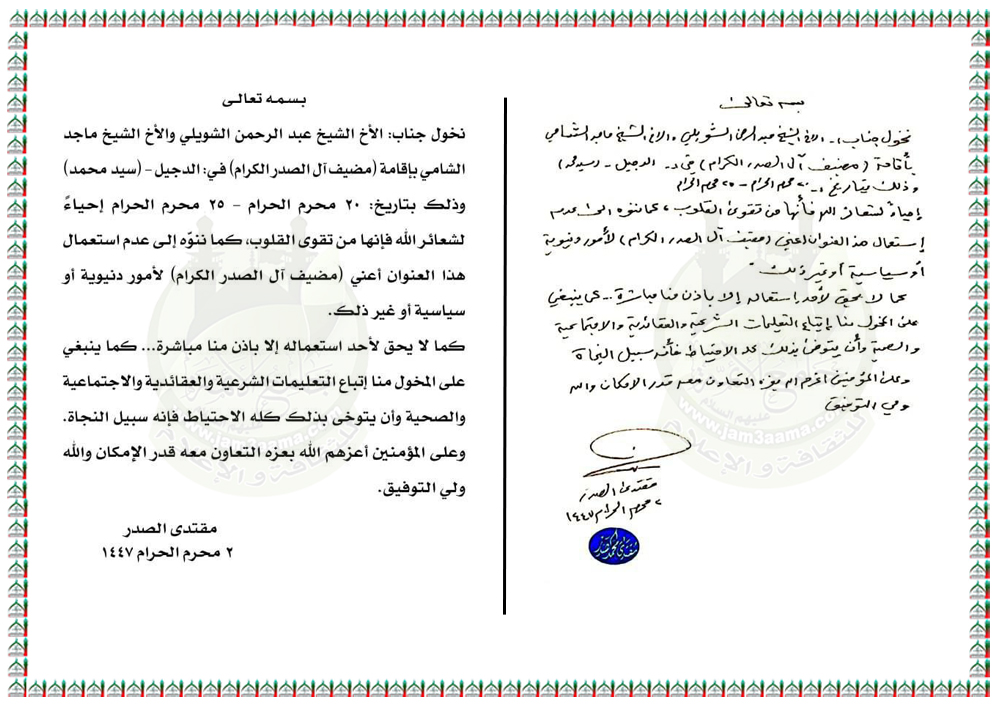 بسم تعالى
نخول جناب:- الاخ الشيخ عبد الرحمن الشويلي والاخ الشيخ ماجد الشامي
بأقامة (مضيف آل الصدر الكرام) في:- الدجيل - (سيد محمد)
وذلك بتاريخ:- ٢٠ محرم الحرام - ٢٥ محرم الحرام
إحياءً لشعائر الله فأنها من تقوى القلوب، كما ننوه الى عدم
إستعمال هذا العنوان أعني (مضيف آل الصدر الكرام) لأمور دنيوية
أو سياسية أو غير ذلك
كما لا يحق لأحد إستعماله إلا بإذن منا مباشرة... كما ينبغي
على المخول منا إتباع التعليمات الشرعية والعقائدية والاجتماعية
والصحية وأن يتوخى بذلك كله الاحتياط فأنه سبيل النجاة
وعلى المؤمنين اعزهم الله بعزه التعاون معه قدر الامكان والله
ولي التوفيق
مقتدى الصدر
٢ محرم الحرام ١٤٤٧
بسمه تعالى
نخول جناب: الأخ الشيخ عبد الرحمن الشويلي والأخ الشيخ ماجد
الشامي بإقامة (مضيف آل الصدر الكرام) في: الدجيل - (سيد محمد)
وذلك بتاريخ: ٢٠ محرم الحرام - ٢٥ محرم الحرام إحياءً
لشعائر الله فإنها من تقوى القلوب، كما ننوّه إلى عدم استعمال
هذا العنوان أعني (مضيف آل الصدر الكرام) لأمور دنيوية أو
سياسية أو غير ذلك.
كما لا يحق لأحد استعماله إلا بإذن منا مباشرة... كما ينبغي
على المخول منا إتباع التعليمات الشرعية والعقائدية والاجتماعية
والصحية وأن يتوخى بذلك كله الاحتياط فإنه سبيل النجاة.
وعلى المؤمنين أعزهم الله بعزه التعاون معه قدر الإمكان والله
ولي التوفيق.
مقتدى الصدر
٢ محرم الحرام ١٤٤٧
www.jam3aama.com
للثقافة والإعلام